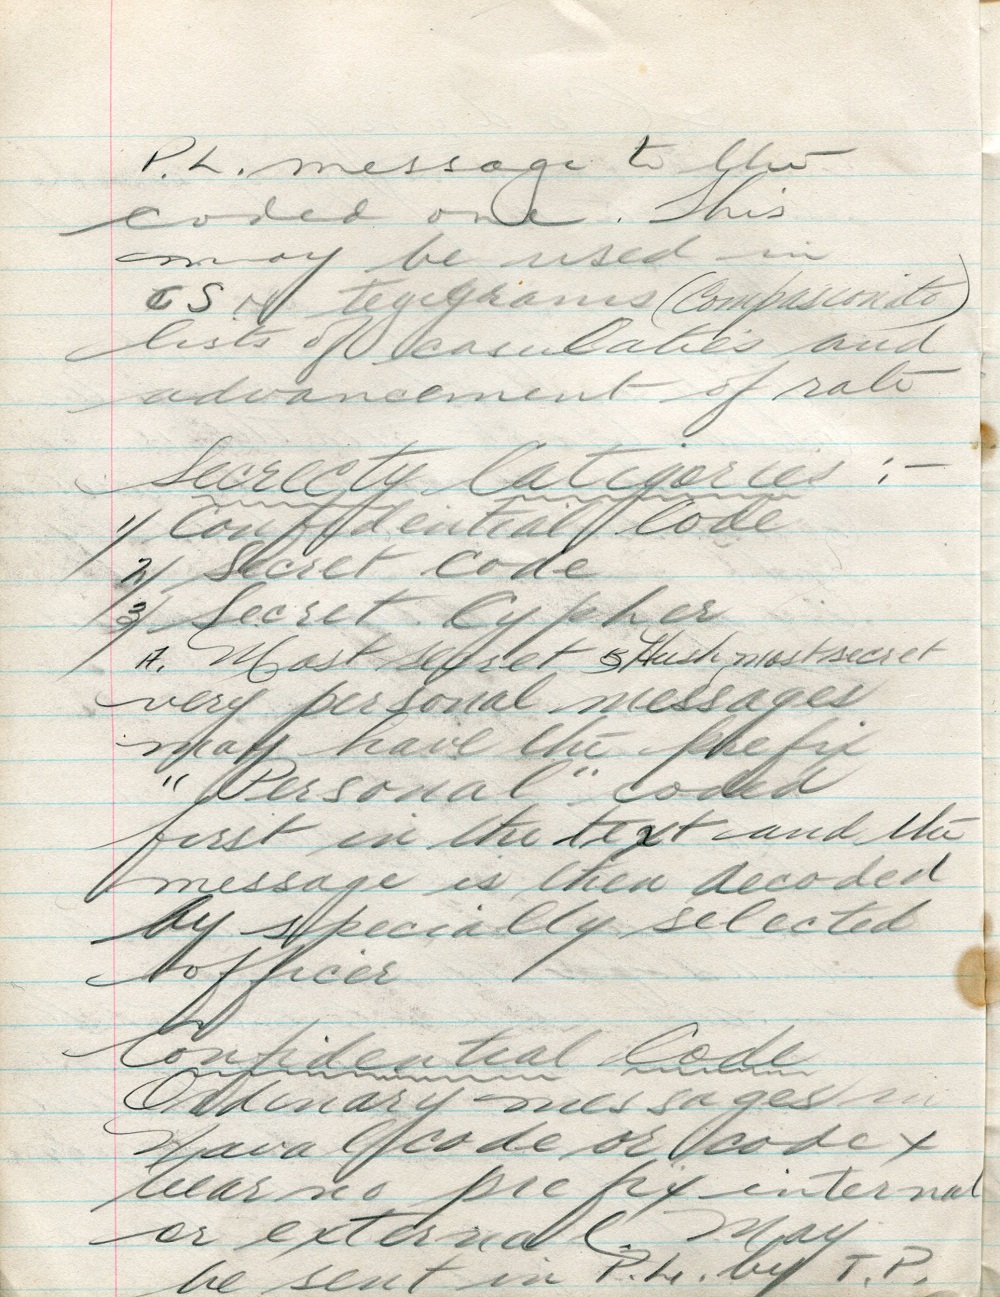 P.L. message to the
coded one. This
may be used in
CS or tegigrams (Compassionito)
lists of casulaties and
advancement of rate
Secrecty Catigories :-
1) Confidential Code
2) Secret Code
3) Secret Cypher
A. Most secret B Hush, most secret
very personal messages
may have the prefix
"Personal" coded
first in the text and the
message is then decoded
by specially selected
officer
Confidential Code
Ordinary messages in
Naval code or code x
bear no prefix internal
or external. May
be sent in P.L. by T.P.